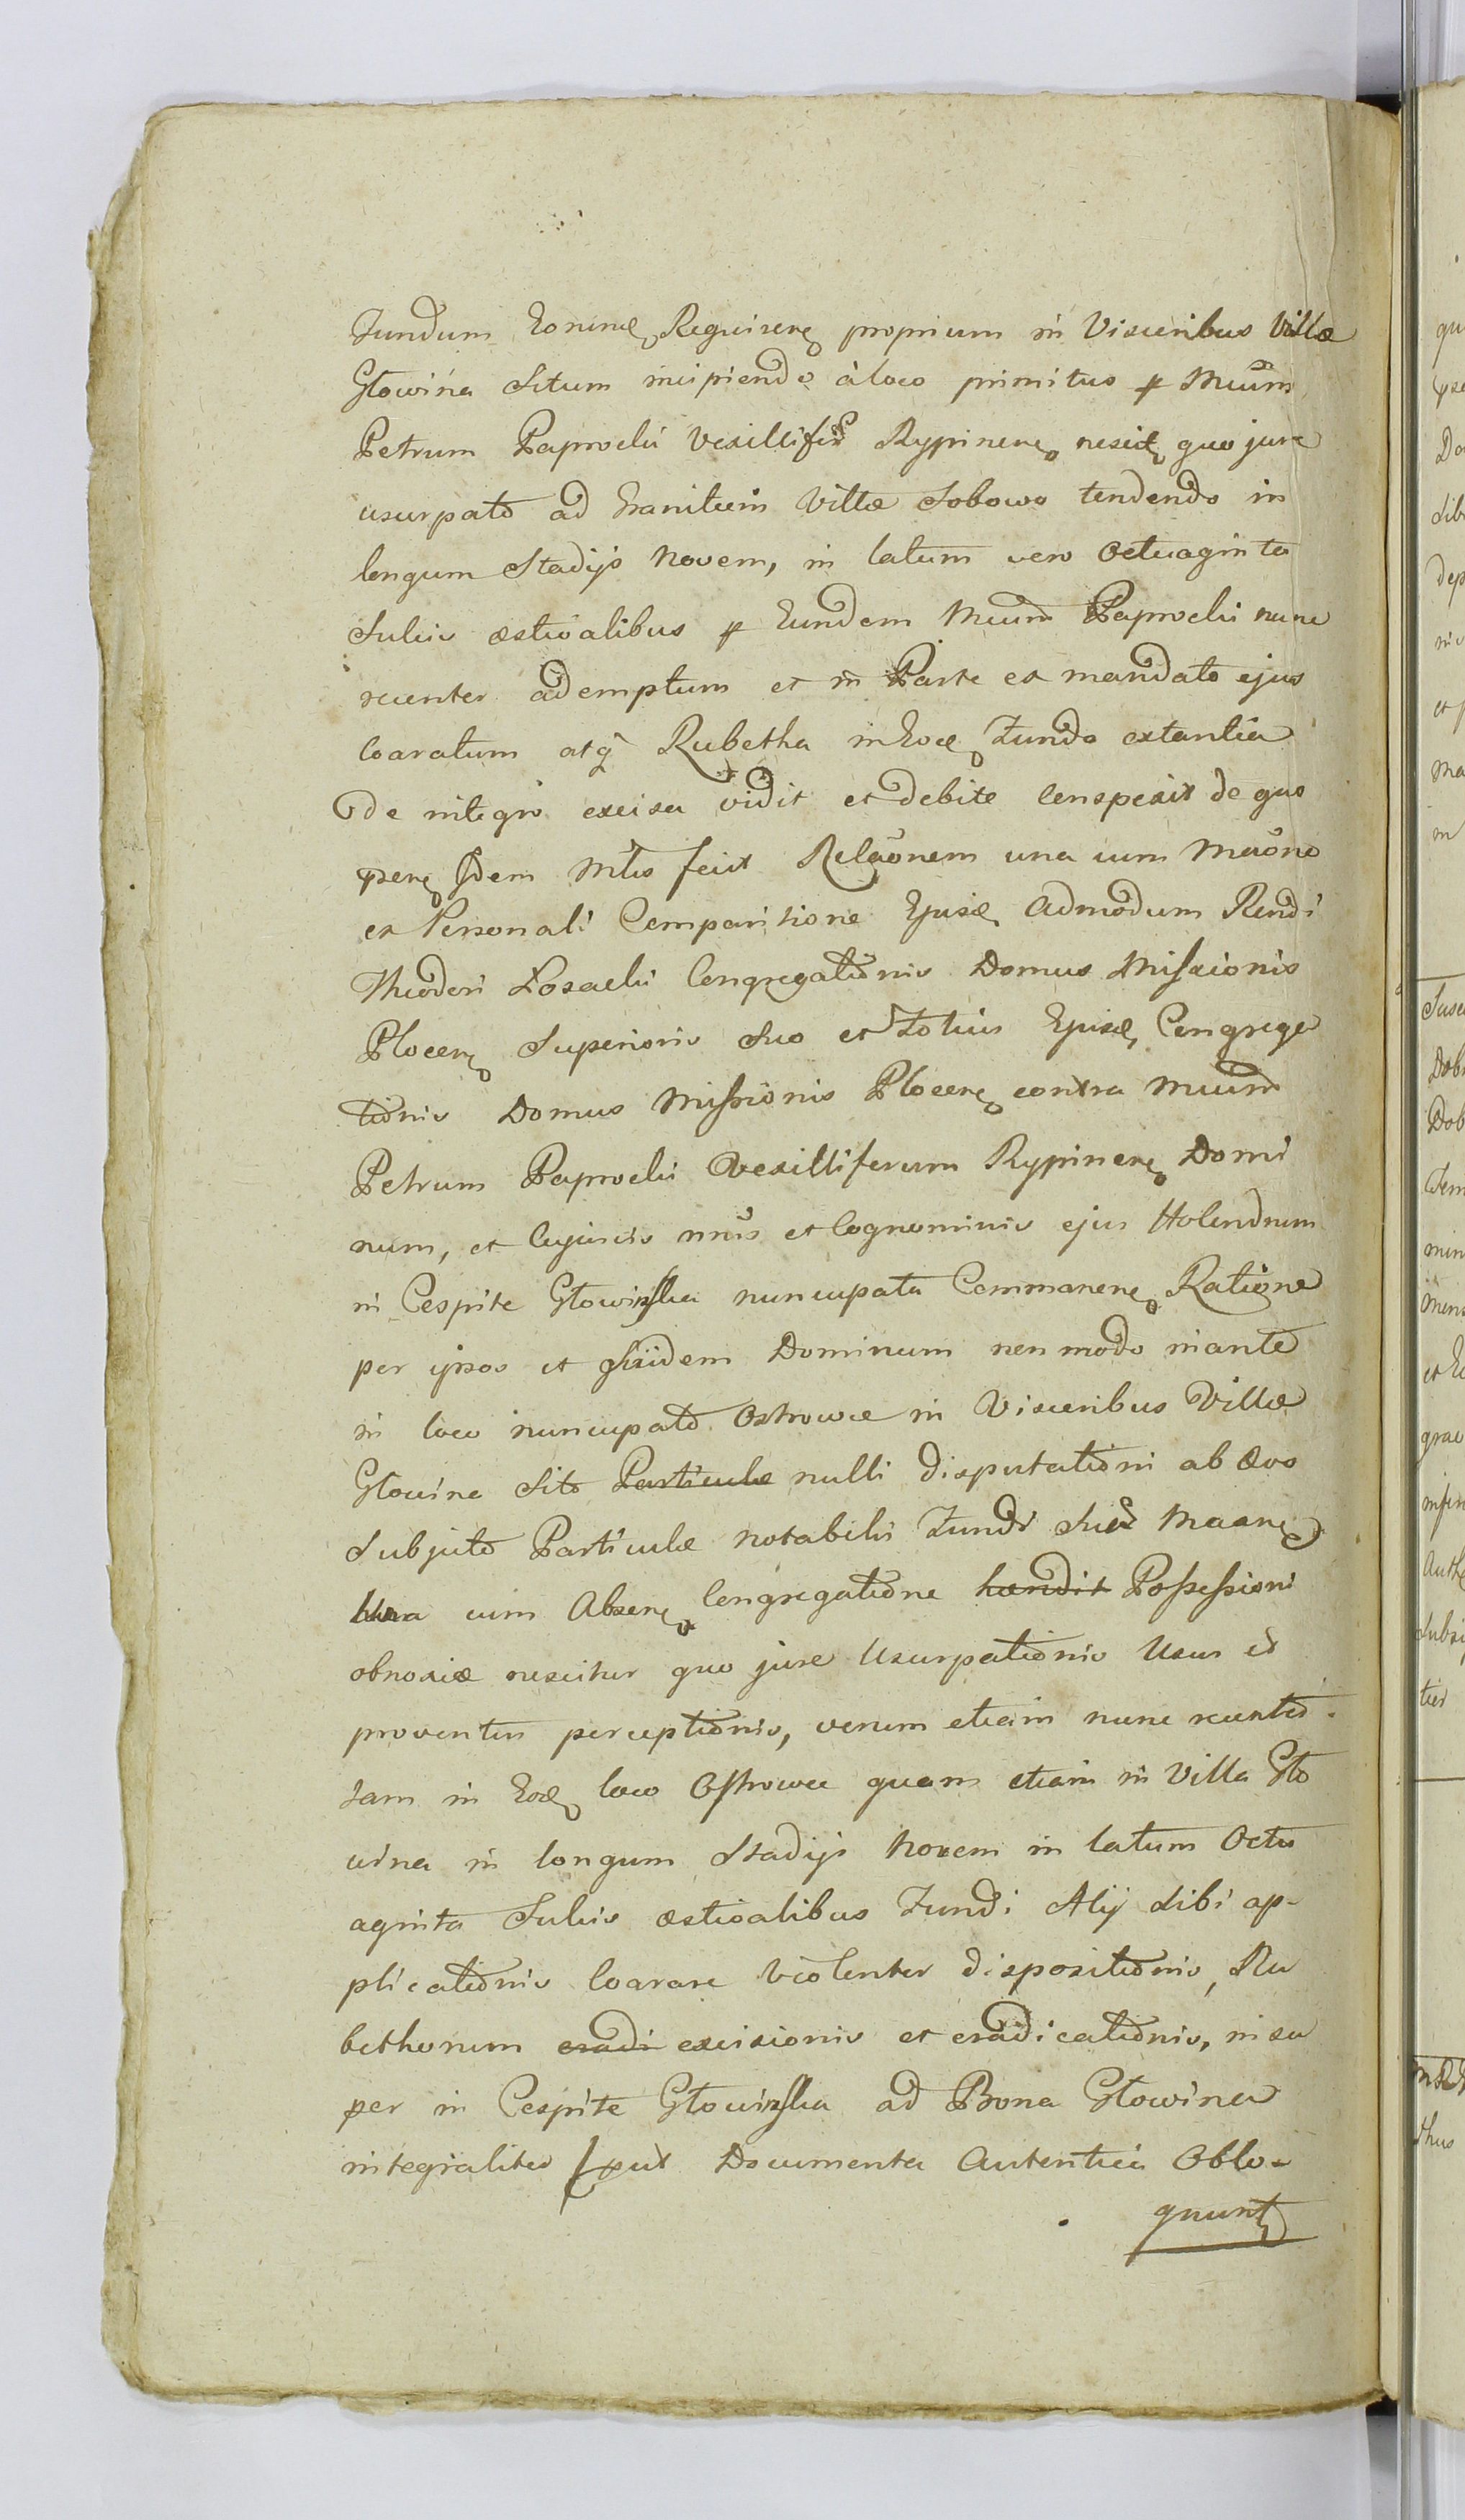 Fundum Eorund Requiren proprium in Visceribus Villæ
Głowina Situm incipiendo a loco primitus p Mcum
Petrum Paprocki Vexillifer Rypinen nescit quo jure
usurpato ad Graniciem Villæ Sobowo tendendo in
longum Stadijs Novem, in latum vero Octuaginta
Sulcis æstivalibus p Eundem Mcum Paprocki nunc
recenter ademptum et in Parte ex mandato ejus
coaratum atq Rubetha in Eod Fundo extantia
de integro excisa vidit et debite conspexit de quo
psens Idem Mtis fecit Relaōnem una cum Maōne
et Personali Comparitione Ejusd Admodum Rendi
Theodori Losacki Congregationis Domus Missionis
Plocen Superioris Suo et Totius Ejusd Congrega
tionis Domus Missionis Plocen contra Mcum
Petrum Paprocki Vexilliferum Rypinen Domi
num, et cujusvis nnis et Cognominis ejus Holendrum
in Cespite Głowinska nuncupata Commanen Ratione
per ipsos et Dominum non modo inante
in loco nuncupato Ostrowce in Visceribus Villæ
Głowina Sito Particulæ nulli disputationi ab Ævo
Subjecto Particulæ notabilis Fundi Sui Maanen
una cum Absen Congregatione Possessioni
obnoxiæ nescitur quo jure Usurpationis Usus et
proventus perceptionis, verum etiam nunc recenter
tam in Eod loco Ostrowce quam etiam in Villa Gło
wina in longum Stadijs Novem in latum Octu
aginta Sulcis æstivalibus Fundi Alij Sibi ap-
plicationis Coarare violenter dispositionis, Ru
bethorum eradi excisionis et eradicationis, insu
per in Cespite Głowinska ad Bona Głowina
integraliter put Documenta Autentica Oblo-
quunt